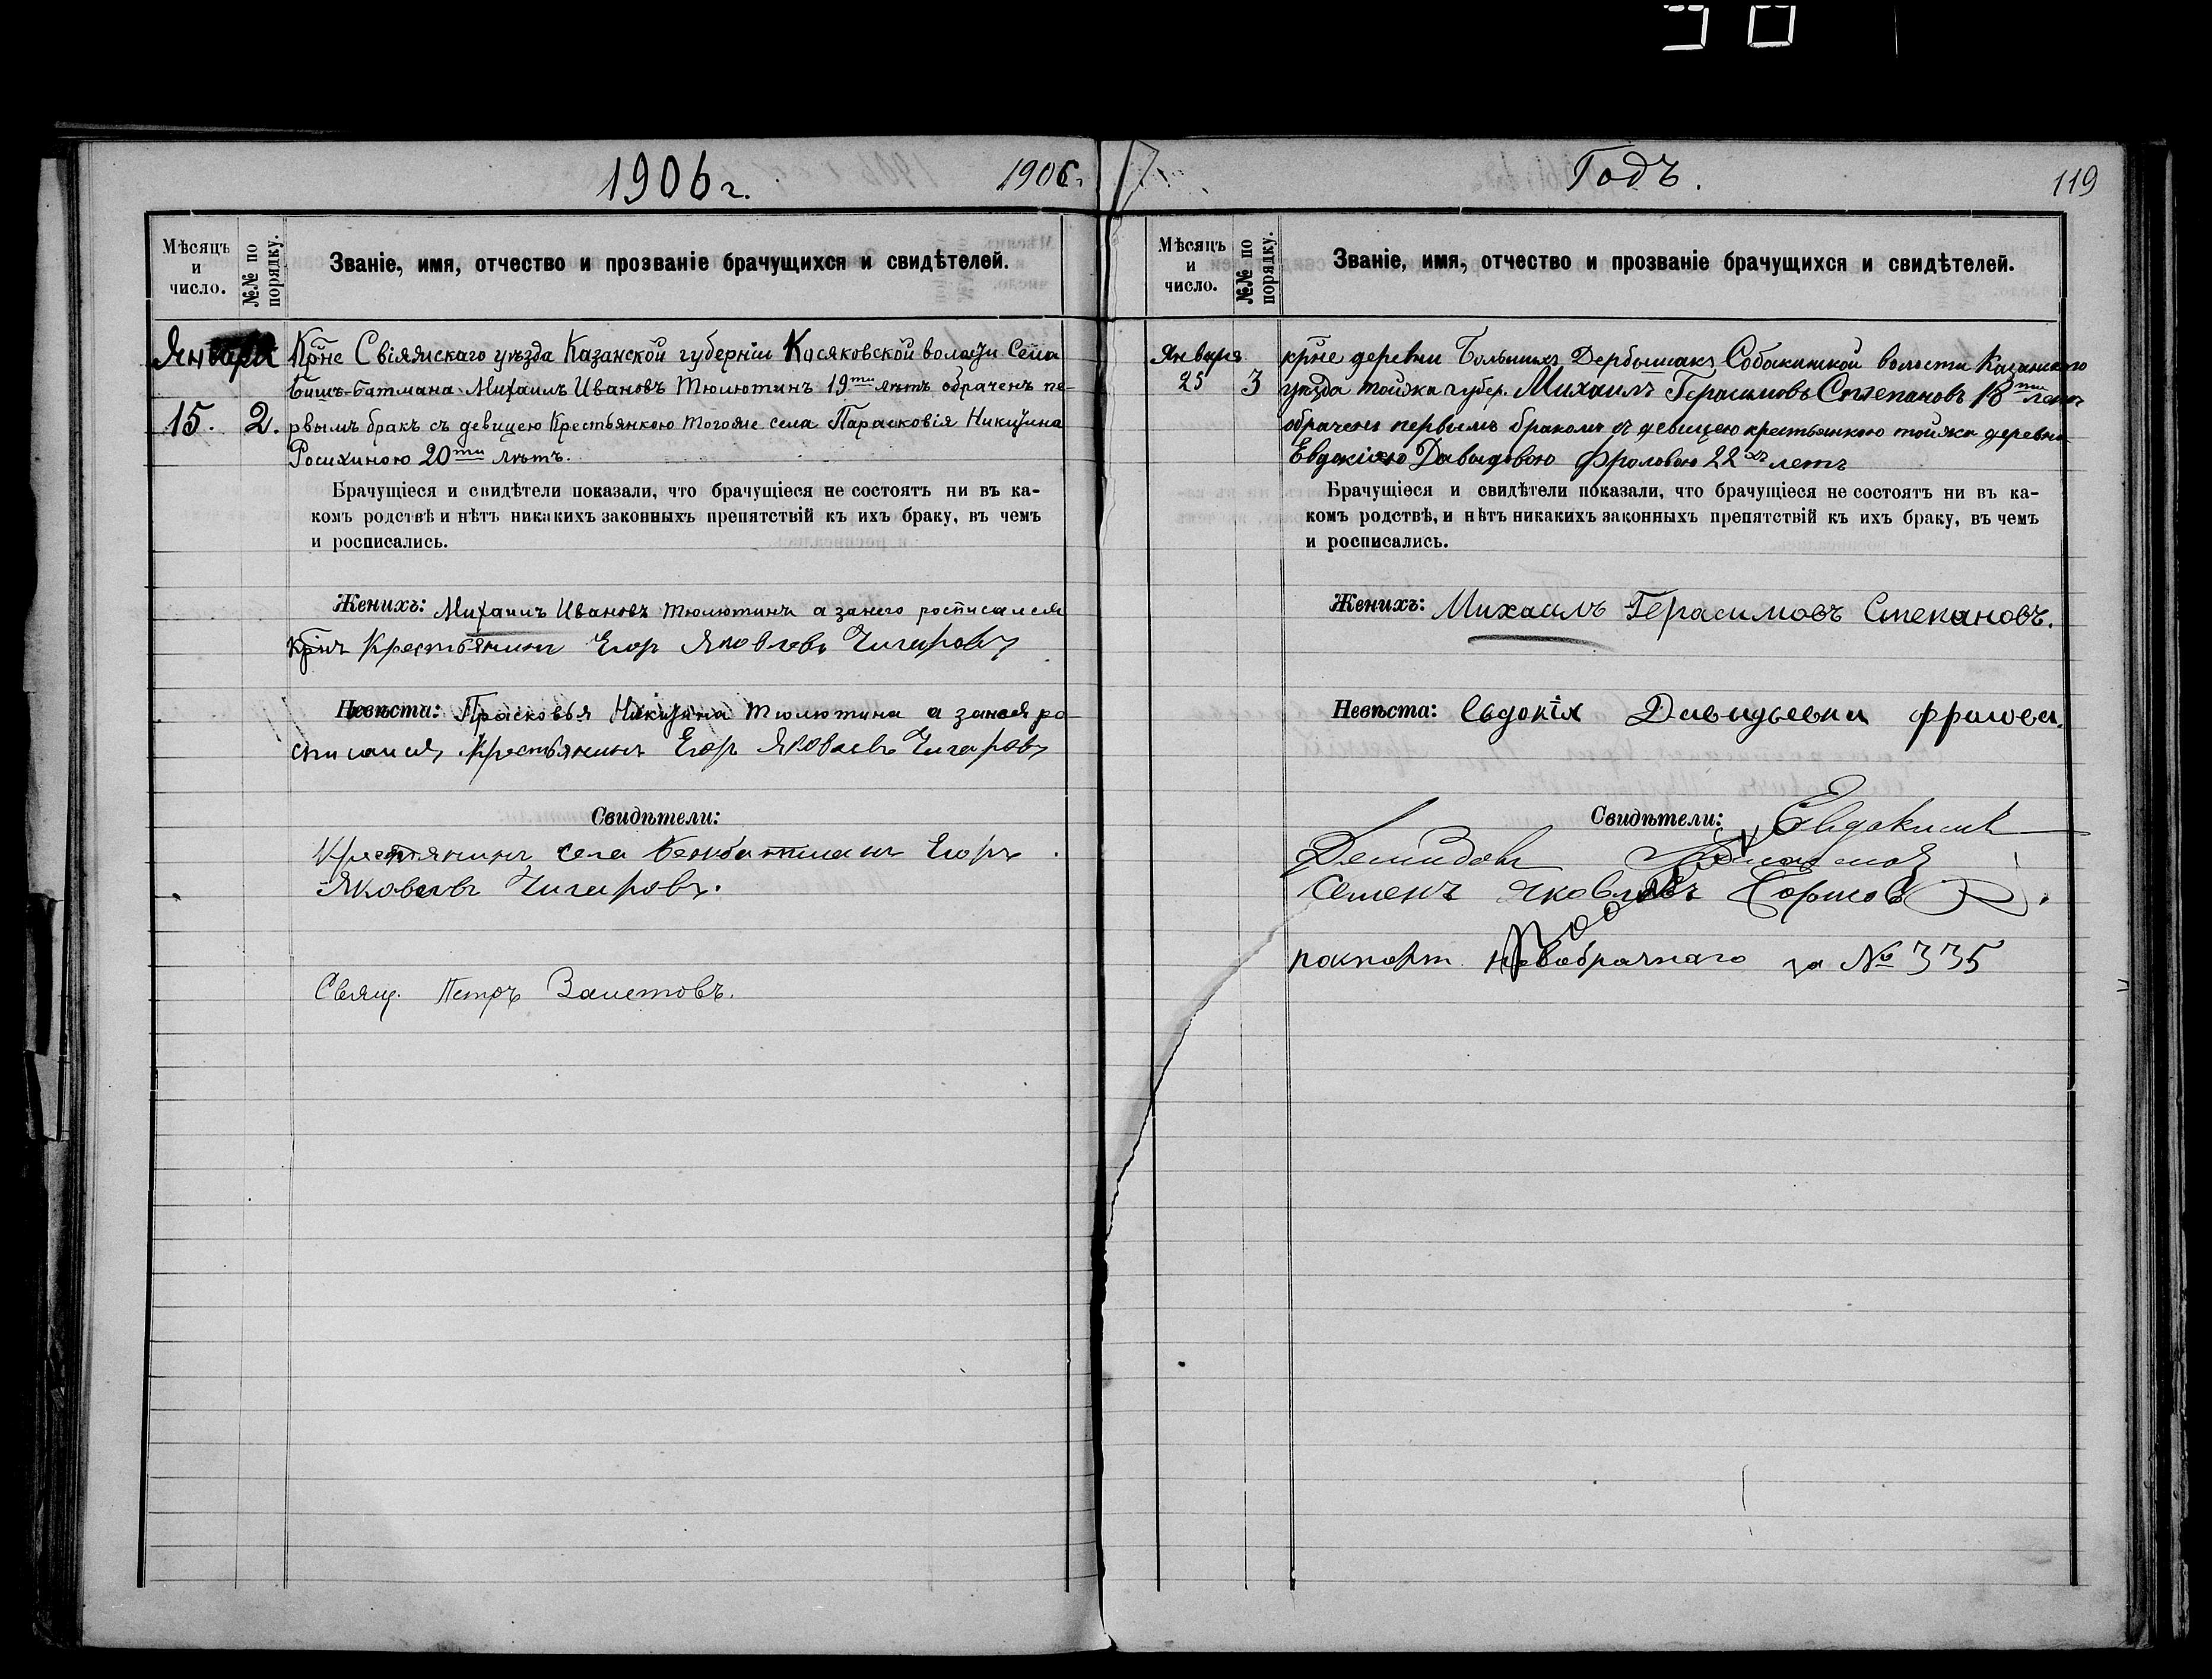 1906 г.
1906 г.
Мѣсяцъ и число.
№№ по порядку.
Званіе, имя, отчество и прозваніе брачущихся и свидѣтелей.
Января
15. 2.
Крне Свіяжскаго уѣзда Казанской губерніи Косяковской волости Села
Бишъ-Батмана Михаилъ Ивановъ Тюлютинъ 19ти лѣтъ обраченъ пе-
рвымъ бракъ съ девицею Крестьянкою тогоже села Парасковія Никитина
Росихиною 20ти лѣтъ.
Брачущіеся и свидѣтели показали, что брачущіеся не состоятъ ни въ ка-
комъ родствѣ и нѣтъ никакихъ законныхъ препятствій къ ихъ браку, въ чемъ
и росписались.
Женихъ: Михаилъ Ивановъ Тюлютинъ а занего росписался
крнъ Крестьянинъ Егор Яковлевъ Чигаровъ
Невѣста: Прасковья Никитина Тюлютина а занея ро-
списался Крестьянинъ Егор Яковлевъ Чигаровъ
Свидѣтели:
Крестьянинъ села Егоръ
Яковлевъ Чигаровъ.
Свящ. Петръ Залетовъ.
Годъ.
119
Мѣсяцъ и число.
№№ по порядку.
Званіе, имя, отчество и прозваніе брачущихся и свидѣтелей.
Января
25 3
крне деревни Большихъ Дербышакъ Собакинской волости Казанскаго
уѣзда тойжа губер. Михаилъ Герасимовъ Степановъ 18ти летъ
обраченъ первымъ бракомъ съ девицею крестьянкою тойжа деревни
Евдокіею Давыдовою Фроловою 22хъ летъ
Брачущіеся и свидѣтели показали, что брачущіеся не состоятъ ни въ ка-
комъ родствѣ, и нѣтъ никакихъ законныхъ препятствій къ ихъ браку, въ чемъ
и росписались.
Женихъ: Михаилъ Герасимовъ Степановъ.
Невѣста: Евдокія Давидьевна Фролова.
Свидѣтели: Евдокимъ
Демидовъ
Семенъ Яковлевъ
паспорт новобрачнаго за № 335